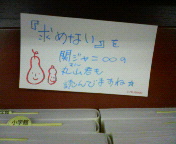 『求めない』を
関ジャニ∞の
丸山君も
読んでますね☆
小学館